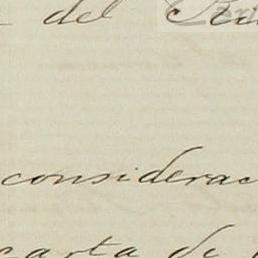 del
considerac
carta de